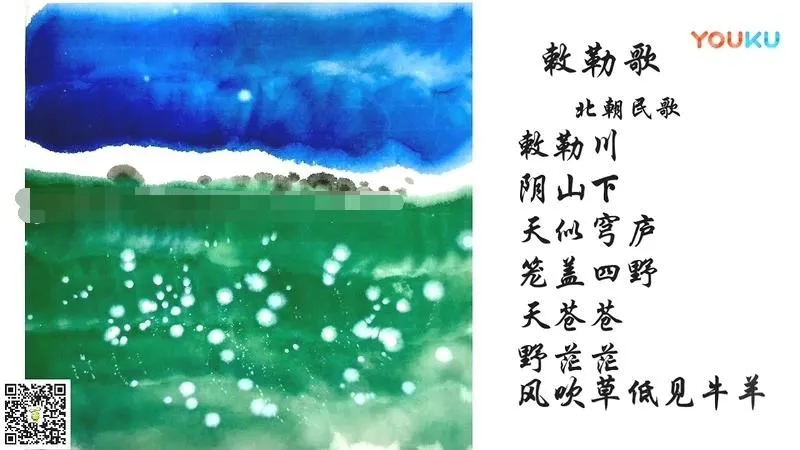 YOUKU
敕勒歌
北朝民歌
敕勒川
阴山下
天似穹庐
笼盖四野
天苍苍
野茫茫
风吹草低见牛羊